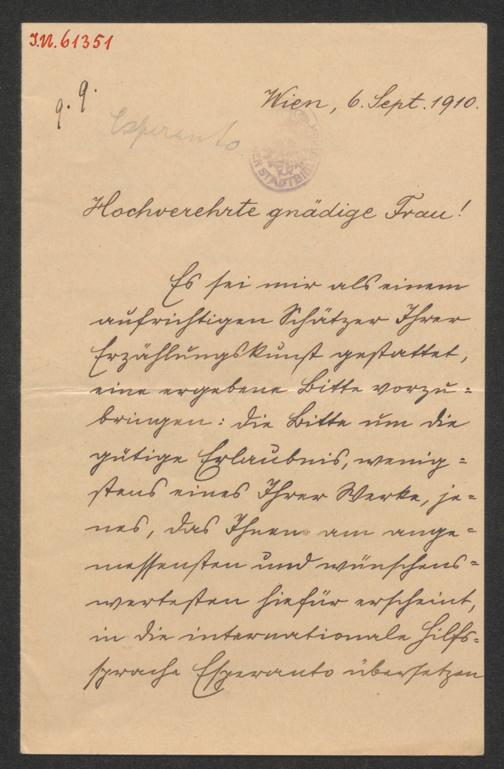 I.N. 61351
g. g.
Esperanto
Wien, 6. Sept. 1910.
STADTBI
Hochverehrte gnädige Frau!
Es sei mir als einem
aufrichtigen Schätzer Ihrer
Erzählungskunst gestattet,
eine ergebene Bitte vorzu-
bringen: die Bitte um die
gütige Erlaubnis, wenig-
stens eines Ihrer Werke, je-
nes, das Ihnen am ange-
messensten und wünschens-
wertesten hiefür erscheint,
in die internationale Hilfs-
sprache Esperanto übersetzen